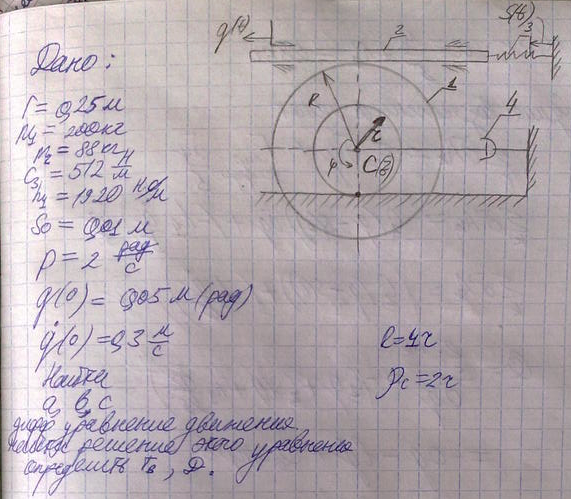 Дано:
r = 0,25 м
m₁ = 200 кг
m₂ = 88 кг
C₃ = 512 Н/м
h₄ = 1920 Н·с/м
S₀ = 0,01 м
p = 2 рад/с
q(0) = 0,05 м (рад)
q̇(0) = 0,3 м/с
Найти
a, b, c
дифф уравнение движения.
решение этого уравнения
определить Tв, D.
q(t)
2
S(t)
3
R
1
4
r
φ
C(z)
R=4r
ρc=2r